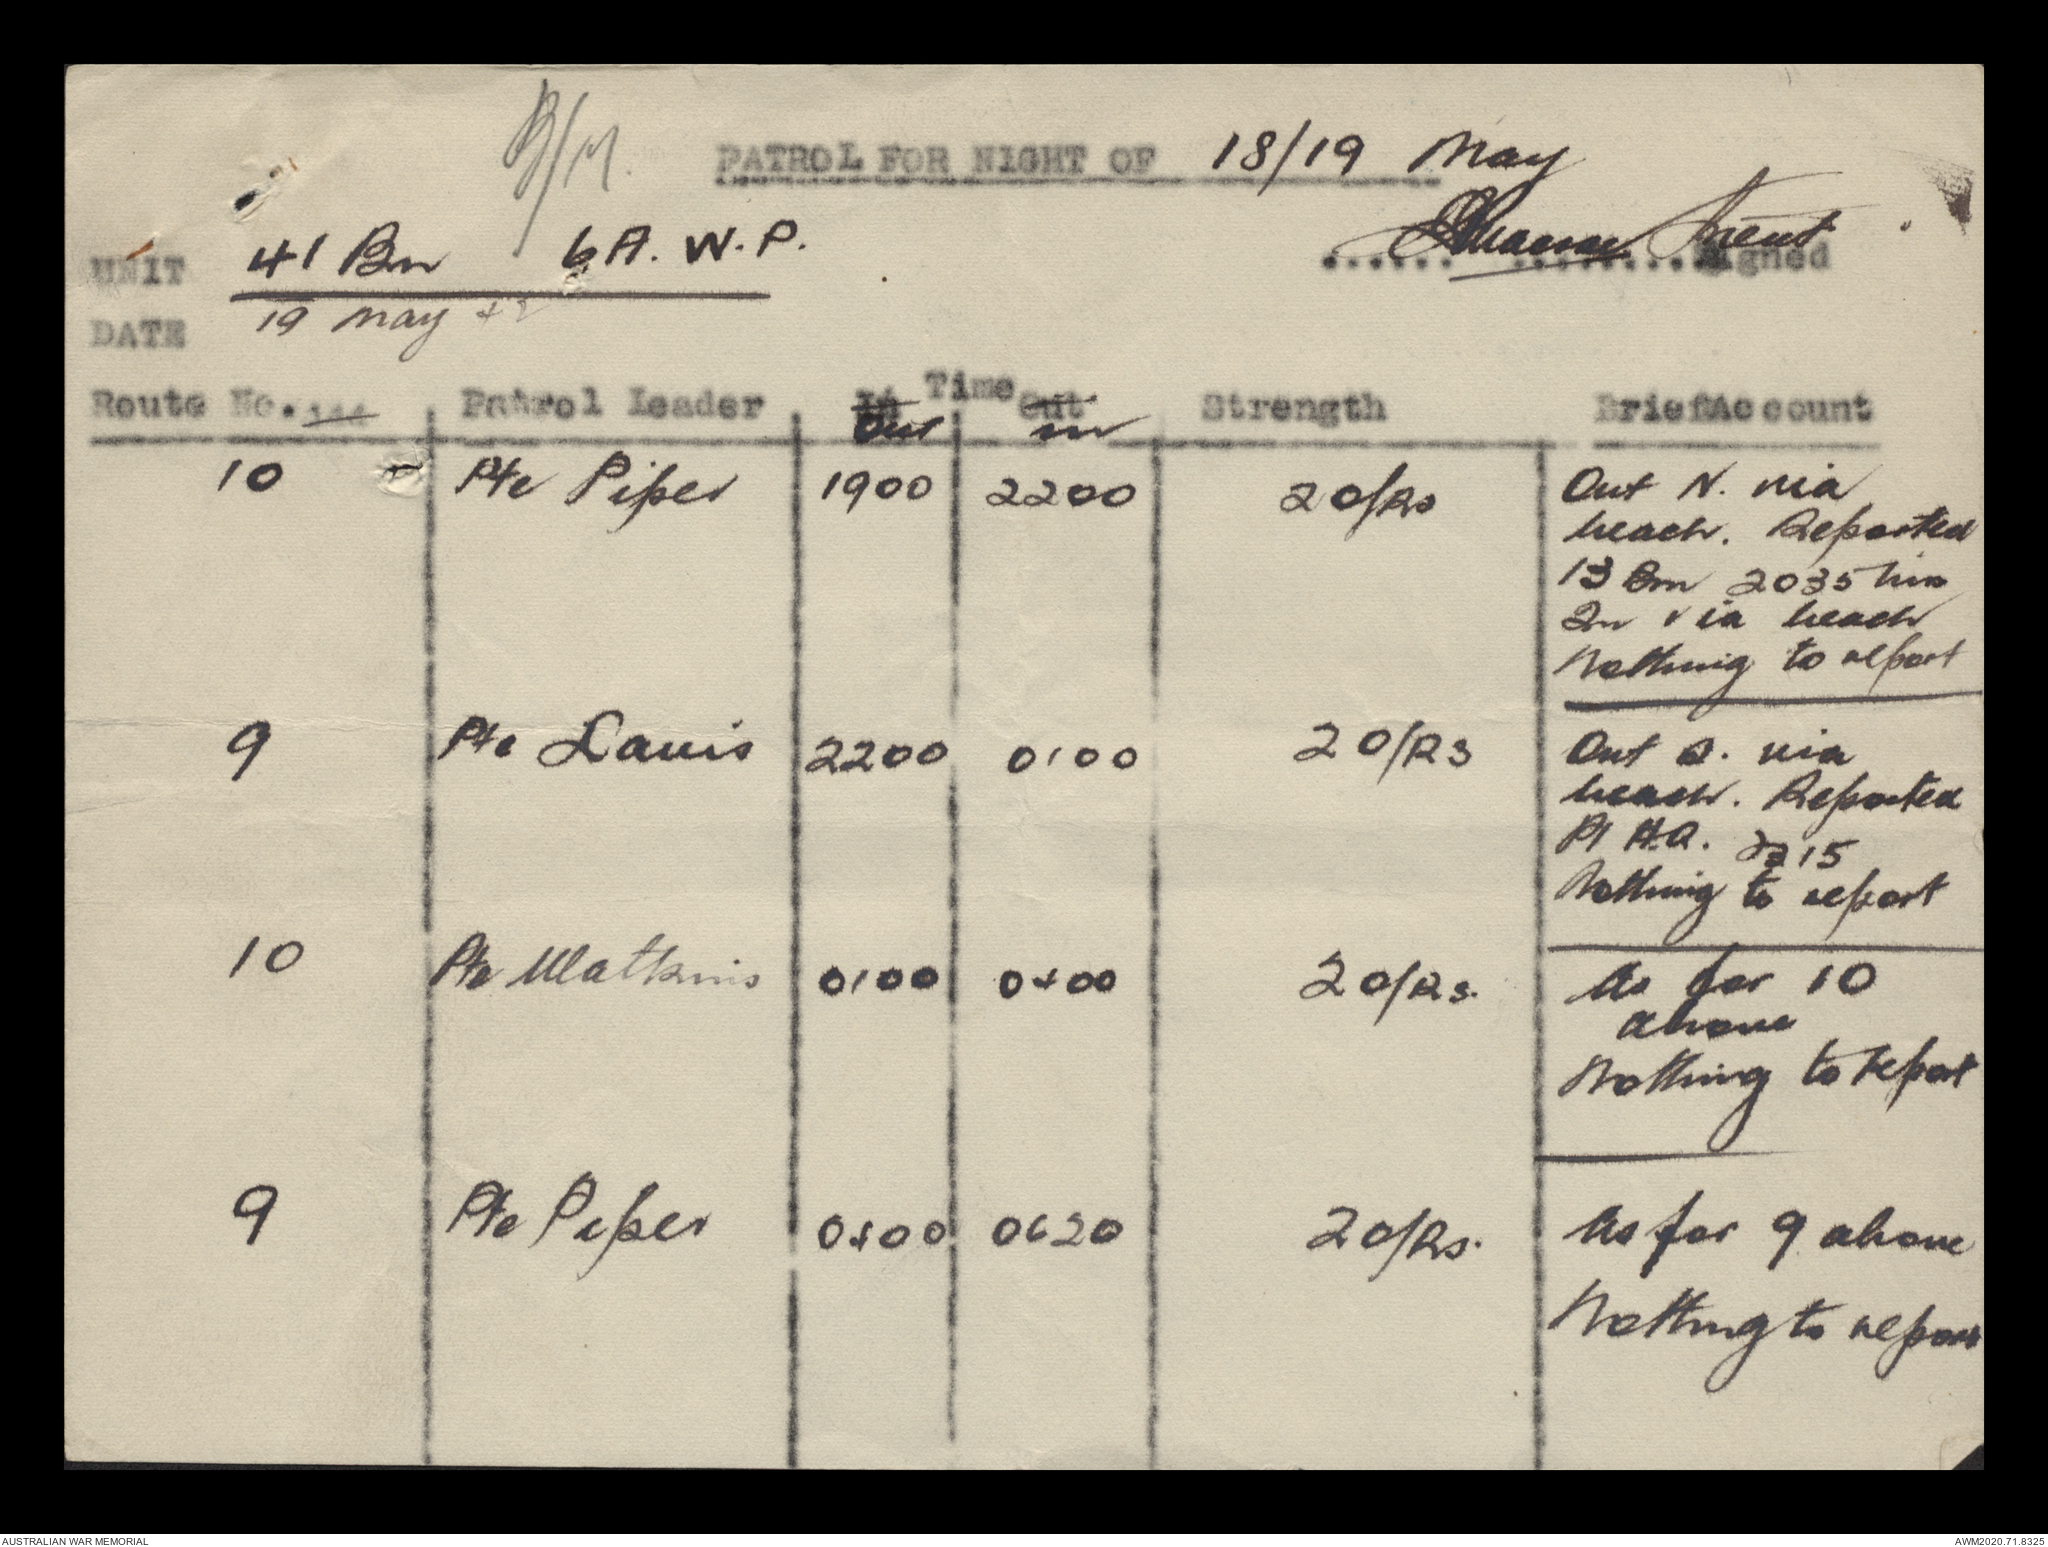 B/M.
PATROL FOR NIGHT OF 18/19 May
UNIT 41 Bn 6 A. W. P.
Lieut
Signed
DATE 19 May 42
Route No. Patrol Leader In Time Out Strength Brief Account
Out In
10 Pte Piper 1900 2200 2 O/Rs Out N. via
beach. Reported
13 Bn 2035 hrs
In via beach
Nothing to report
9 Pte Davis 2200 0100 2 O/RS Out S. via
beach. Reported
Pl H.Q. 2215
Nothing to report
10 Pte Watkins 0100 0400 2 O/Rs. As for 10
above
Nothing to report
9 Pte Piper 0400 0620 2 O/Rs. As for 9 above
Nothing to report
AUSTRALIAN WAR MEMORIAL AWM2020.71.8325